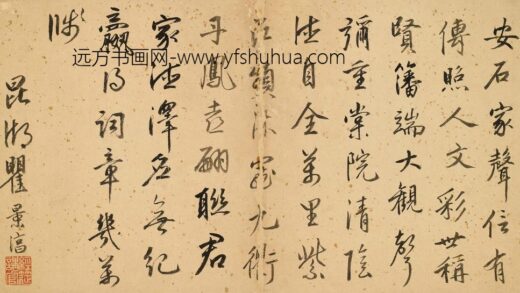 安石家聲信有
傳照人文彩世稱
賢藩端大觀聲
彌重棠院清陰
德自全萬里紫
深九衢
丹鳳翩聯君
家德澤無紀
贏得詞章幾萬
牋
昆湖瞿景淳
远方书画网-www.yfshuhua.com